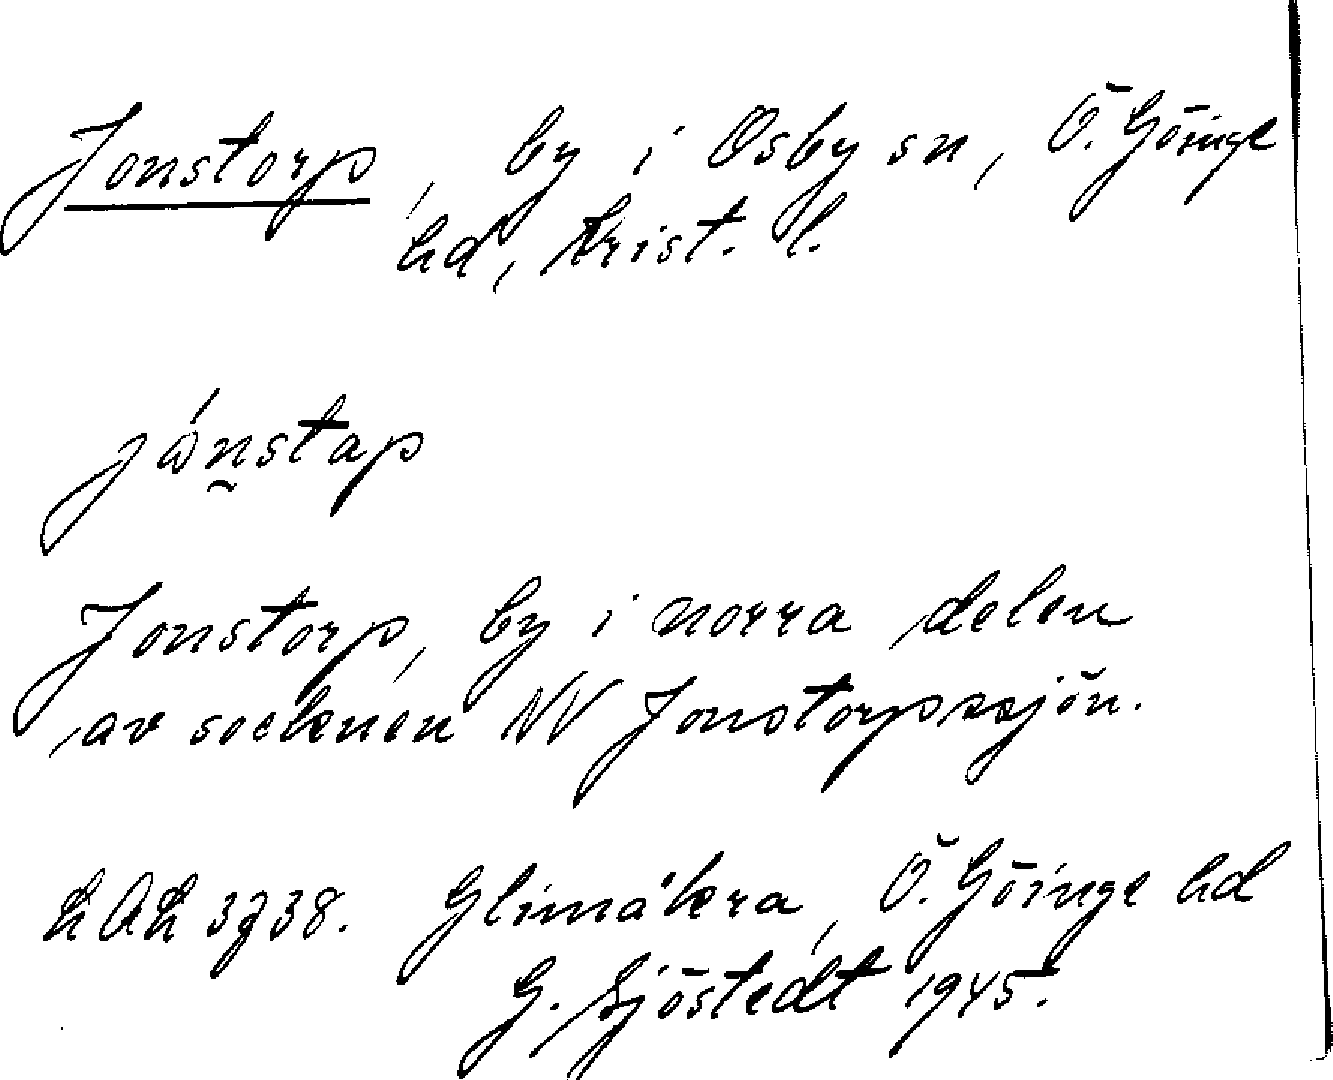 Jonstorp, by i Osby sn, Ö. Göinge
hd, Krist. l.
jónstap
Jonstorp, by i norra delen
av socknen NV Jonstorpssjön.
Glimåkra, Ö. Göinge hd
G. Sjöstedt 1945.